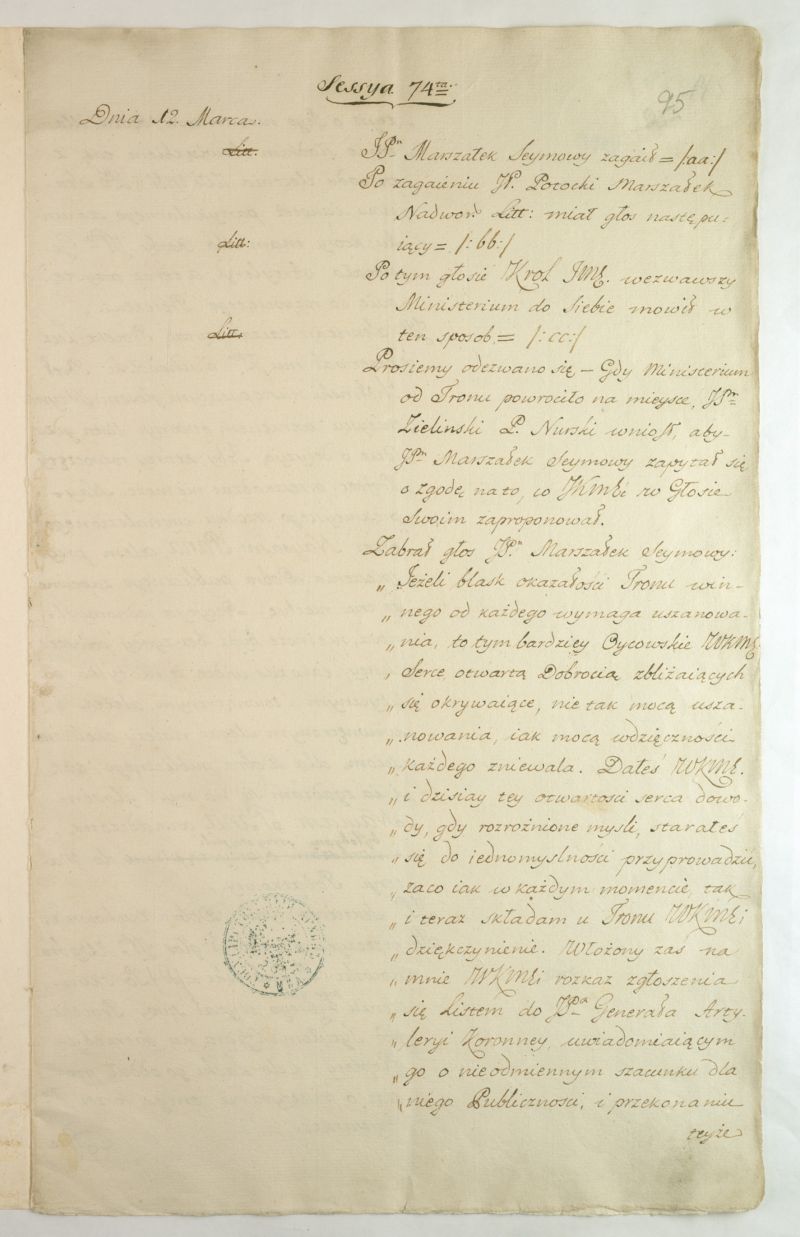 Sessya 74ta.
95
Dnia 12. Marca.
Litt:
JPn Marszałek Seymowy zagaił = /aa:/
Po zagaieniu JP. Potocki Marszałek
Nadwor: Litt: miał głos następu-
Litt:
iący = /:bb:/
Po tym głosie Krol JMć. wezwawszy
Ministerium do Siebie mowił w
Litt:
ten sposob = /:cc:/
Prosiemy odezwano się, – Gdy Ministerium
od Tronu powrociło na mieysce, JPn
Zielinski P. Nurski wniosł, aby
JPn Marszałek Seymowy zapytał się
o zgodę na to, co JKMći w Głosie
Swoim zaproponował.
Zabrał głos JPn Marszałek Seymowy:
„ Jeżeli blask okazałości Tronu win-
„ nego od każdego wymaga uszanowa-
„ nia, to tym bardzięy Oycowskie WKMć
„ Serce otwartą Dobrocią zbliżaiących
„ się okrywaiące, nie tak mocą usza-
„ nowania, iak mocą wdzięczności
„ każdego zniewala. Dałeś WKMć.
„ i dzisiay tey otwartosci serca dowo-
„ dy, gdy rozrożnione mysli, starałeś
„ się do iednomyslności przyprowadzić,
„ za co iak w każdym momencie, tak
„ i teraz składam u Tronu WKMći
„ dziękczynienie. Włożony zas na
„ mnie WKMći rozkaz zgłoszenia
„ się Listem do JPa Generała Arty-
„ leryi Koronney, uwiadomiaiącym
„ go o nieodmiennym szacunku dla
„ niego Publicznosci, i przekonaniu
teyże